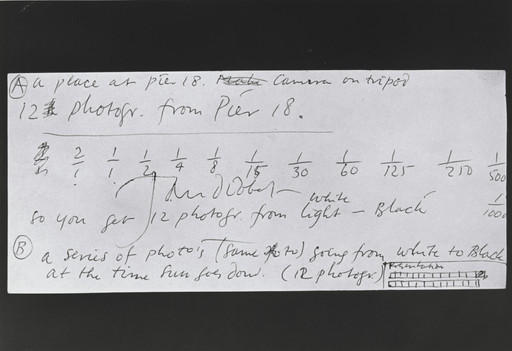 Ⓐ a place at pier 18. Camera on tripod
12 photogr. from Pier 18.
2/1 1/1 1/2 1/4 1/8 1/15 1/30 1/60 1/125 1/250 1/500
1/1000
white
so you get 12 photogr. from light – Black
Ⓑ a series of photo's (same photo) going from white to Black
at the time Sun goes down. (12 photogr.)
Presentation